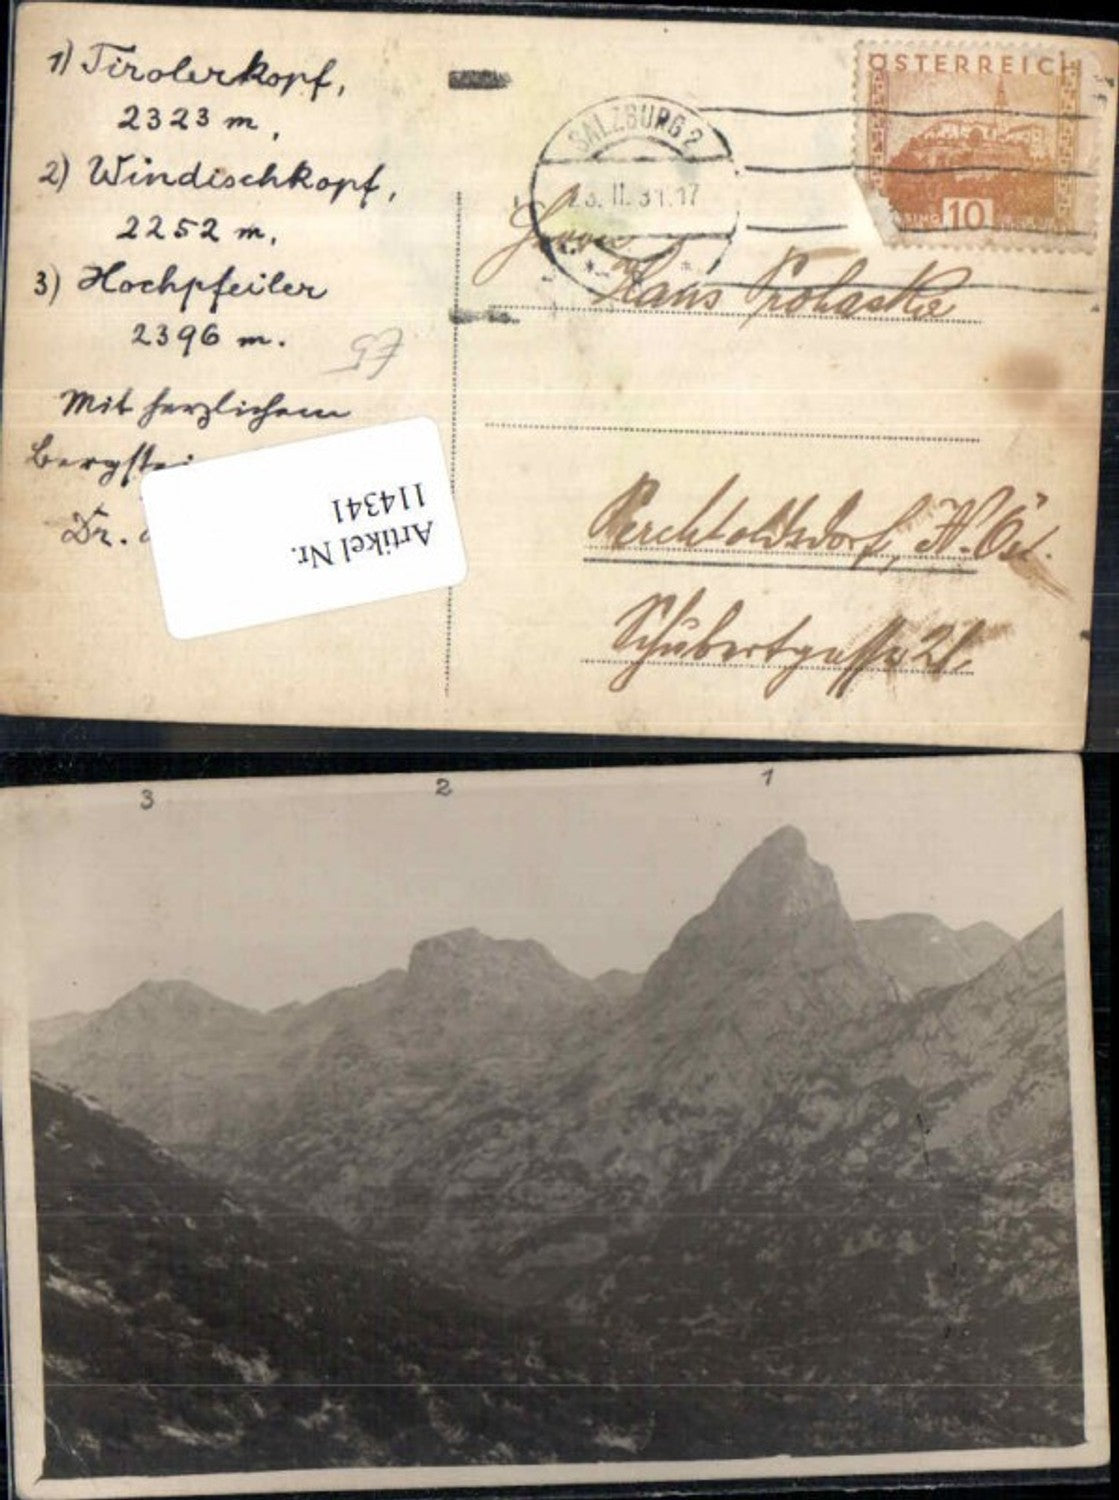 1) Tirolerkopf,
2323 m,
2) Windischkopf,
2252 m,
3) Hochpfeiler
2396 m.
Mit herzlichem
Bergstei
Dr.
Artikel Nr.
114341
ÖSTERREICH
10
SALZBURG 2
23. II. 31. 17
Hans Prohaska
Perchtoldsdorf, N.Öst.
Schubertgasse 21.
3 2 1